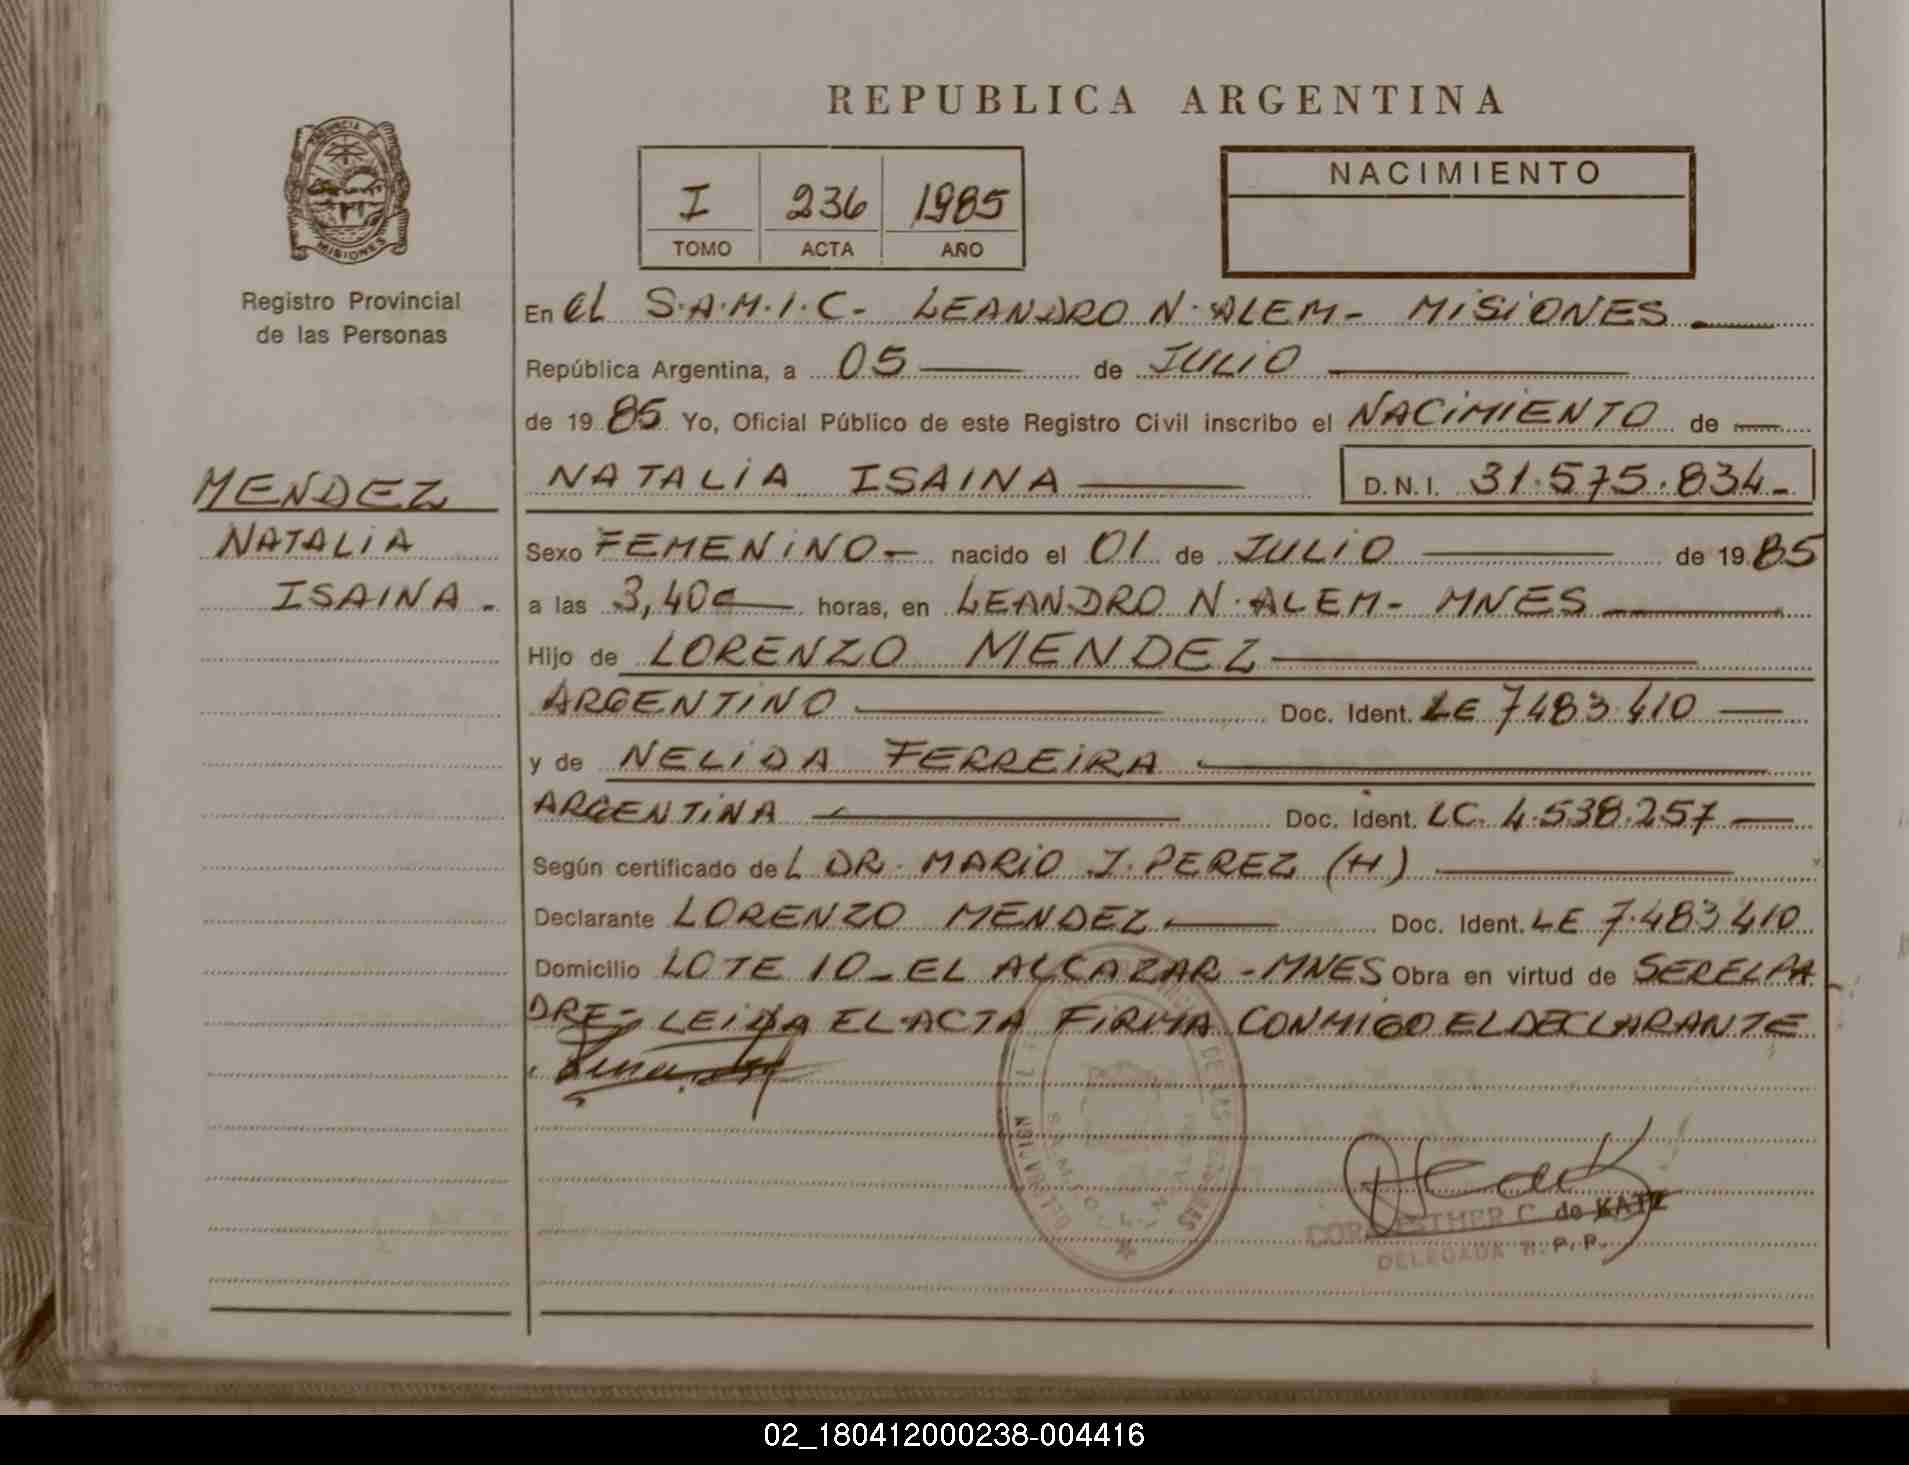 REPUBLICA ARGENTINA
PROVINCIA DE
MISIONES
Registro Provincial
de las Personas
I 236 1985
TOMO ACTA AÑO
NACIMIENTO
En el S.A.M.I.C- LEANDRO N. ALEM- MISIONES
República Argentina, a 05 de JULIO
de 19 85 Yo, Oficial Público de este Registro Civil inscribo el NACIMIENTO de
MENDEZ
NATALIA
ISAINA.
NATALIA ISAINA D.N.I. 31.575.834-
Sexo FEMENINO- nacido el 01 de JULIO de 19 85
a las 3,40 horas, en LEANDRO N. ALEM- MNES
Hijo de LORENZO MENDEZ
ARGENTINO Doc. Ident. LE 7483.410
y de NELIDA FERREIRA
ARGENTINA Doc. Ident. LC. 4.538.257
Según certificado deL DR. MARIO J. PEREZ (H)
Declarante LORENZO MENDEZ Doc. Ident. LE 7.483.410
Domicilio LOTE 10-EL ALCAZAR-MNES Obra en virtud de SER EL PA
DRE- LEIDA EL ACTA FIRMA CONMIGO EL DECLARANTE
ESTHER C. de KATZ
DELEGADA R.P.P.
02_180412000238-004416